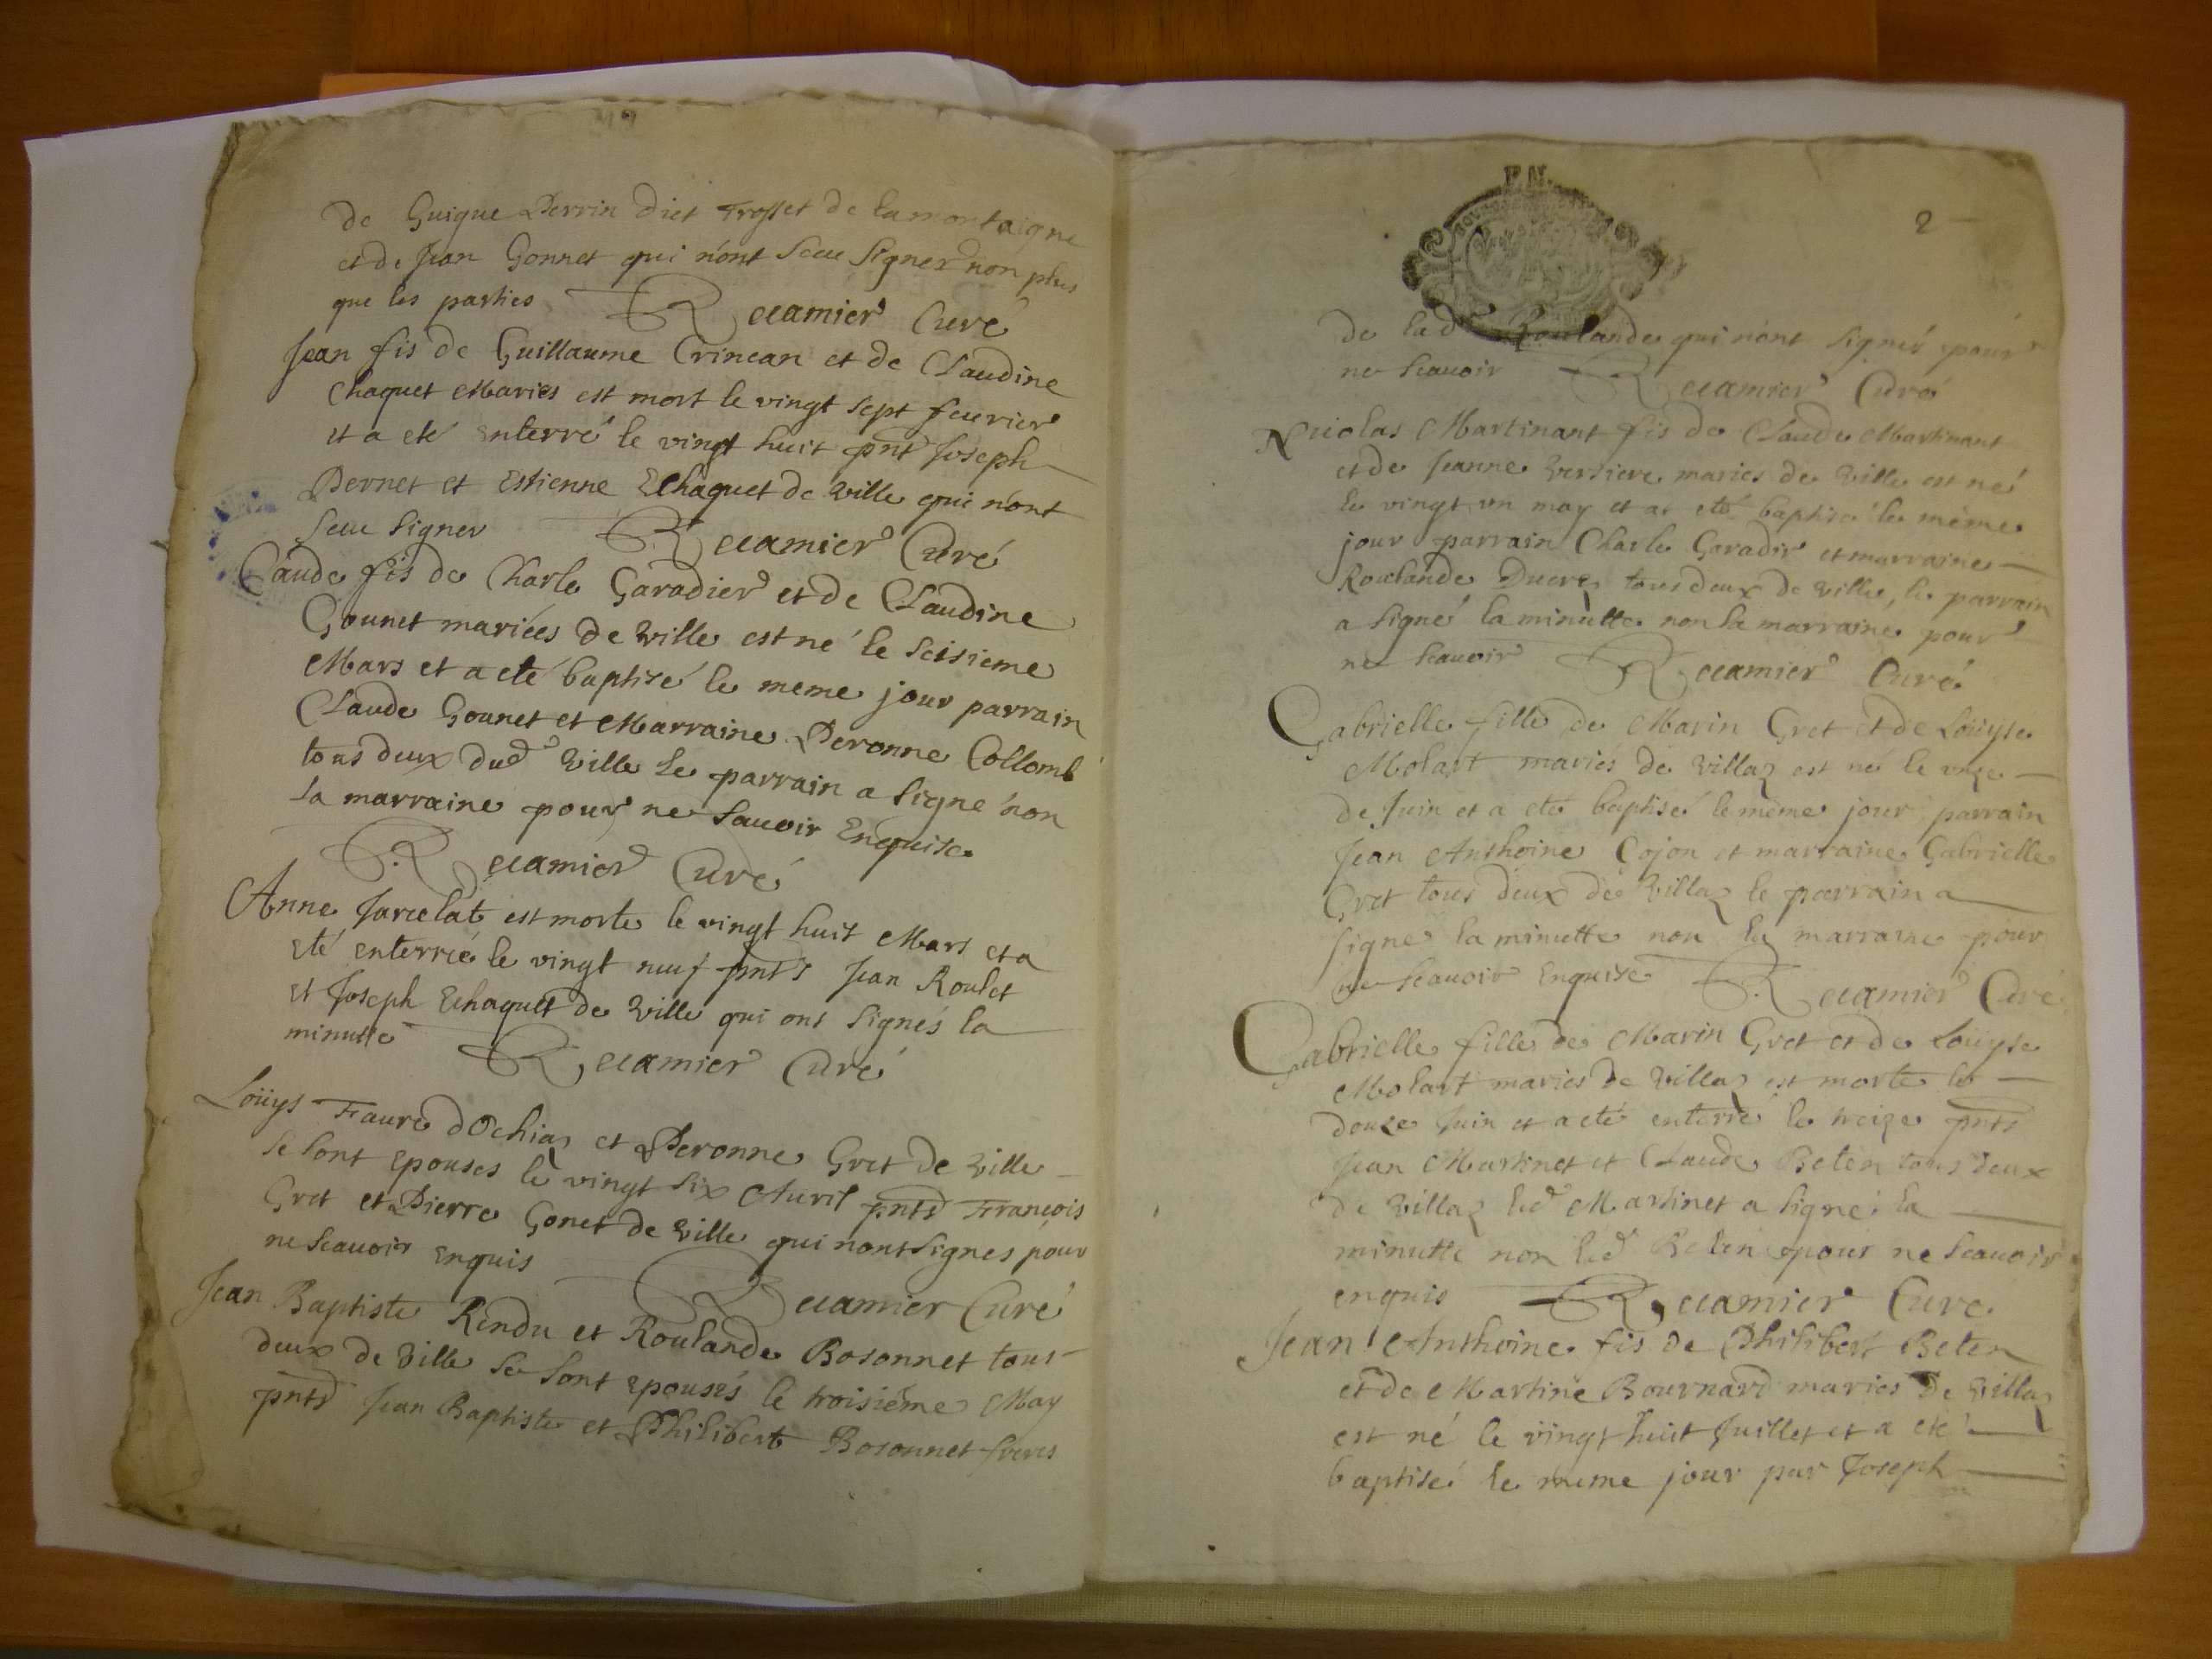 de Guigue Perrin dict Trosset de la montaigne
et de Jean Gonnet qui n'ont sceu signer non plus
que les parties Recamier Curé
Jean fis de Guillaume Crinean et de Claudine
Chaquet Mariés est mort le vingt sept feurier
et a eté enterré le vingt huit pnts Joseph
Pernet et Estienne Echaquet de Ville qui n'ont
sceu signer Recamier Curé
Claude fis de Charle Garadier et de Claudine
Gounet mariées de Ville est né le seisieme
Mars et a eté baptizé le meme jour parrain
Claude Gounet et Marraine Peronne Collomb
tous deux dud Ville Le parrain a signe non
la marraine pour ne sauoir Enquise
Recamier Curé
Anne Jarcelat est morte le vingt huit Mars et a
eté enterrée le vingt neuf pnts Jean Roulet
et Joseph Echaquet de Ville qui ont signés la
minutte Recamier Curé
Loüys Faure d'Ochiaz et Peronne Gret de Ville
se sont epousés le vingt six Auril pnts François
Gret et Pierre Gonet de Ville qui n'ont signes pour
ne scauoir enquis Recamier Curé
Jean Baptiste Rendu et Roulande Bosonnet tous
deux de Ville se sont epousés le troisiéme May
pnts Jean Baptiste et Philibert Bosonnet freres
F.N.
2
de lad Roulande qui n'ont signés pour
ne scauoir Recamier Curé
Nicolas Martinant fis de Claude Martinant
et de Jeanne Versiere mariés de Ville est né
le vingt un may et a eté baptisé le même
jour parrain Charle Garadir et marraine
Roulande Ducrez tous deux de Ville, le parrain
a signé la minutte non la marraine pour
ne scauoir Recamier Curé
Gabrielle fille de Marin Gret et de Loüyse
Molart mariés de Villaz est né le onze
de Juin et a eté baptisé le même jour parrain
Jean Anthoine Cojon et marraine Gabrielle
Gret tous deux de Villaz le parrain a
signe la minutte non la marraine pour
ne scauoir Enquise Recamier Curé
Gabrielle fille de Marin Gret et de Loüyse
Molart mariés de Villaz est morte le
douze Juin et a eté enterré le treize pnts
Jean Martinet et Claude Beten tous deux
de Villaz led Martinet a signé la
minutte non led Beten pour ne scauoir
enquis Recamier Curé
Jean Anthoine fis de Philibert Beten
et de Martine Bournard mariés de Villaz
est né le vingt huit Juillet et a eté
baptisé le meme jour par Joseph